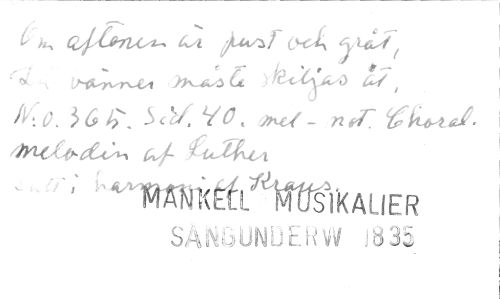 Om aftonen är pust och gråt,
Då vänner måste skiljas åt,
N:o. 365. Sid. 40. mel-not. Choral-
melodin af Luther
satt i harmoni af Kraus.
MANKELL MUSIKALIER
SÅNGUNDERW 1835